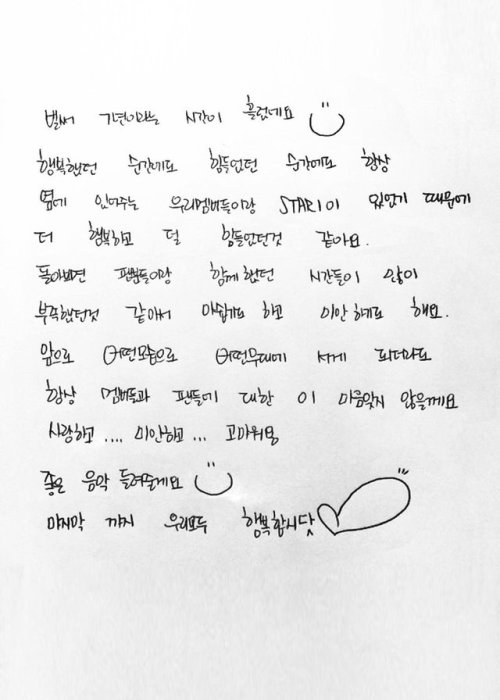 벌써 7년이라는 시간이 흘렀네요
행복했던 순간에도 힘들었던 순간에도 항상
옆에 있어주는 우리멤버들이랑 STAR1이 있었기 때문에
더 행복하고 덜 힘들었던것 같아요.
돌아보면 팬분들이랑 함께했던 시간들이 많이
부족했던것 같아서 아쉽기도 하고 미안하기도 해요.
앞으로 어떤모습으로 어떤무대에 서게 되더라도
항상 멤버들과 팬들에 대한 이 마음잊지 않을께요
사랑하고 .... 미안하고 ... 고마워요
좋은 음악 들려줄게요
마지막 까지 우리모두 행복합시다